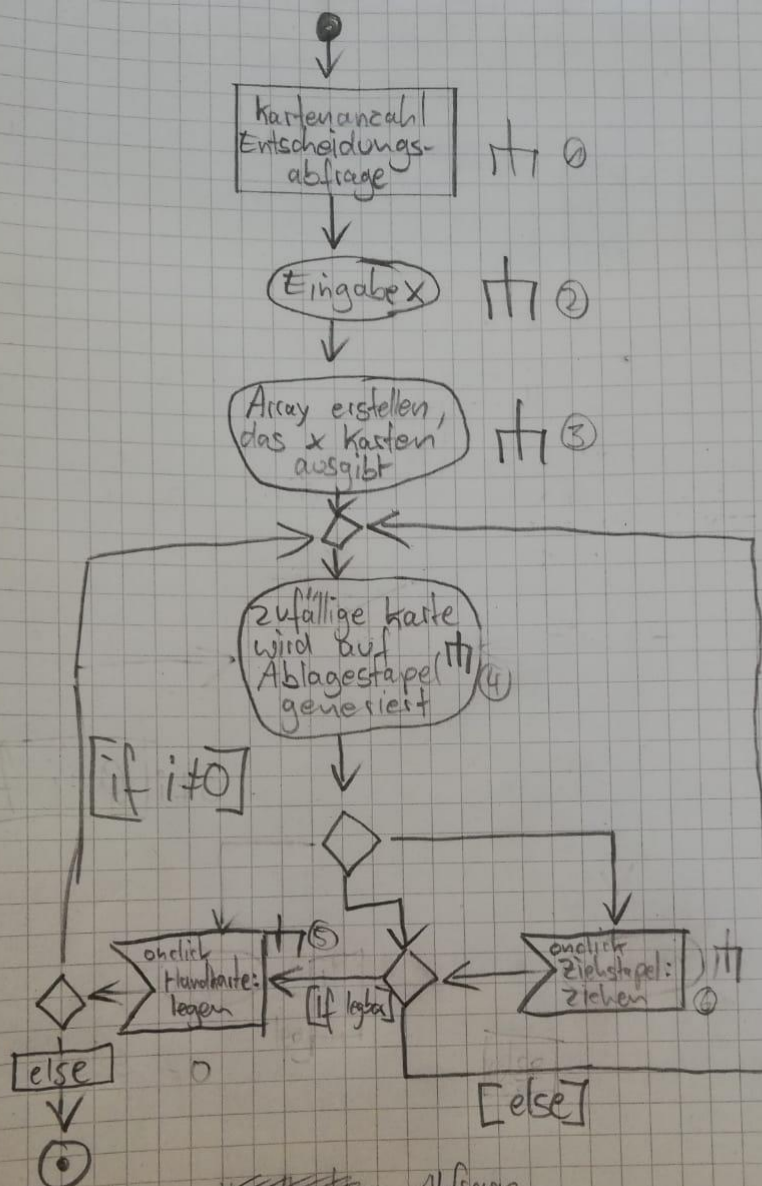 Kartenanzahl
Entscheidungs-
abfrage
1
Eingabe x
2
Array erstellen,
das x Karten
ausgibt
3
zufällige Karte
wird auf
Ablagestapel
generiert
4
[if i≠0]
onclick
Handkarte:
legen
5
[if legbar]
onclick
Ziehstapel:
ziehen
6
[else]
0
[else]